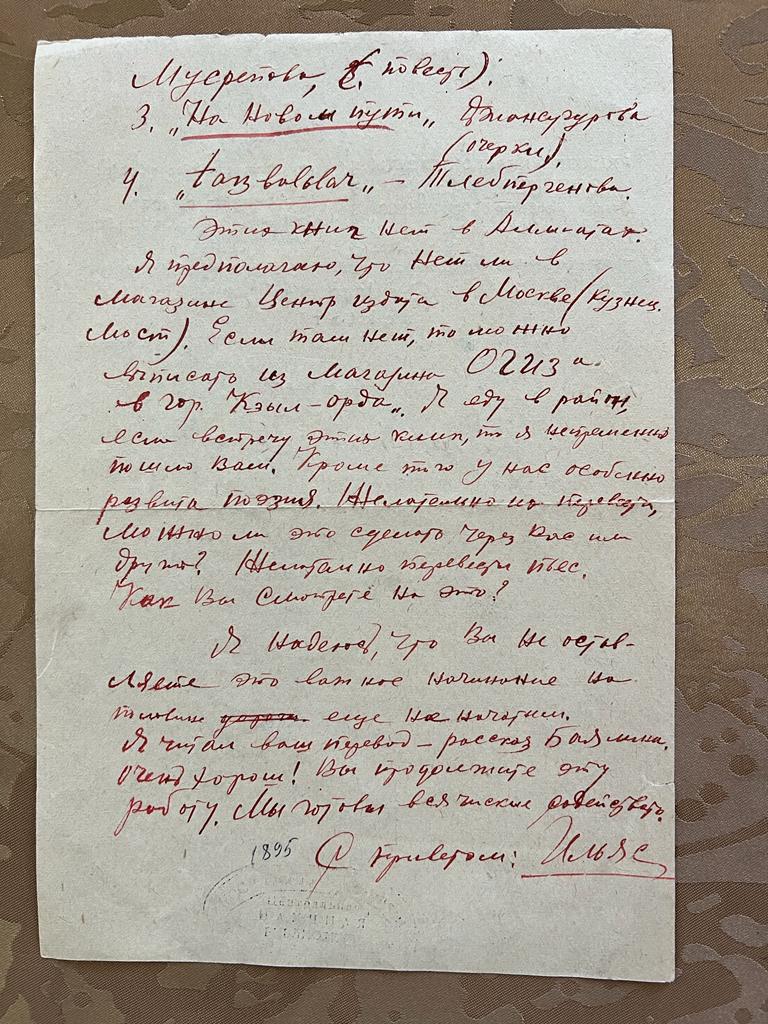 Мусрепова, (повесть).
3. „На новом пути„ Джансугурова
(очерки)
4. „tarzbaƅlar„ – Тлебпергенова.
Этих книг нет в Алматах.
Я предполагаю, что нет ли в
магазине Центр издата в Москве (Кузнец.
Мост). Если там нет, то можно
выписать из магазина ОГИЗа
в гор. Кзыл-орда„. Я еду в район,
если встречу этих книг, то я непременно
пошлю Вам. Кроме того у нас особенно
развита поэзия. Желательно их перевести,
можно ли это сделать через Вас или
других? Желательно перевести пьес.
Как Вы смотрете на это?
Я надеюсь, что Вы не остав-
ляете это важное начинание на
половине дороги еще не начатым.
Я читал ваш перевод – рассказ Баймина.
Очень хорош! Вы продолжите эту
работу. Мы готовы всячиские содействать.
1895 С приветом: Ильяс